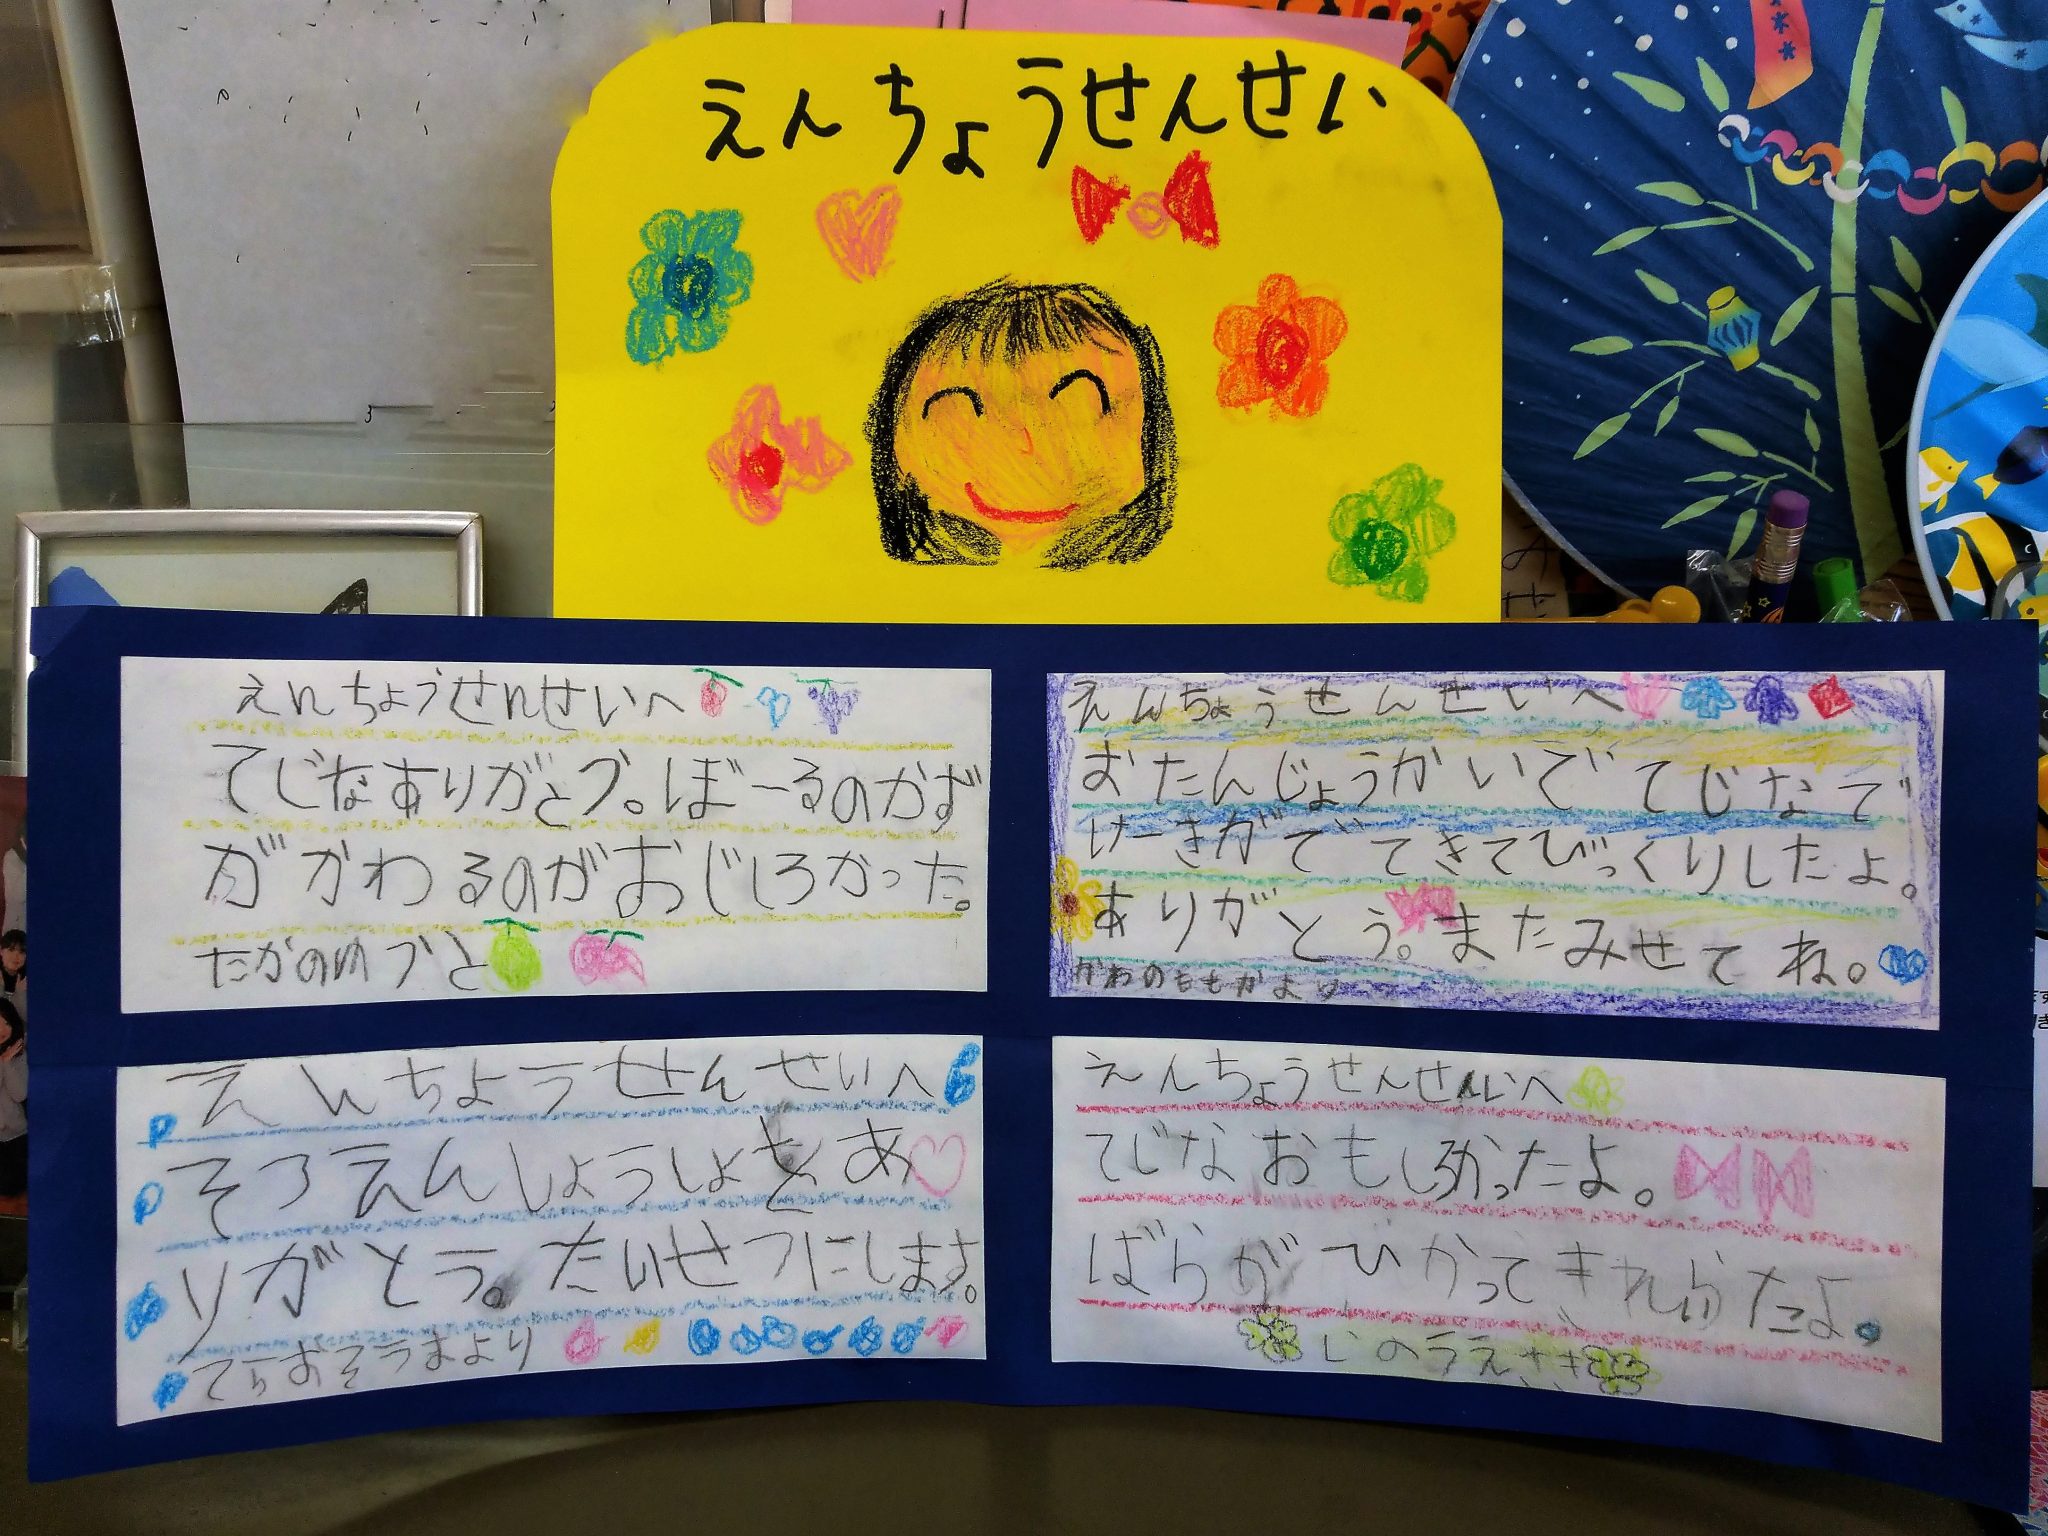 えんちょうせんせい
えんちょうせんせいへ
てじなありがとう。ぼーるのかず
がかわるのがおじしろかった。
たかのゆうと
えんちょうせんせいへ
おたんじょうかいでてじなで
けーきがでてきてびっくりしたよ。
ありがとう。またみせてね。
かわのももかより
えんちょうせんせいへ
そつえんしょうしょをあ
りがとう。たいせつにします。
てらおそうまより
えんちょうせんせいへ
てじなおもしろかったよ。
ばらがひかって
しのうえさき